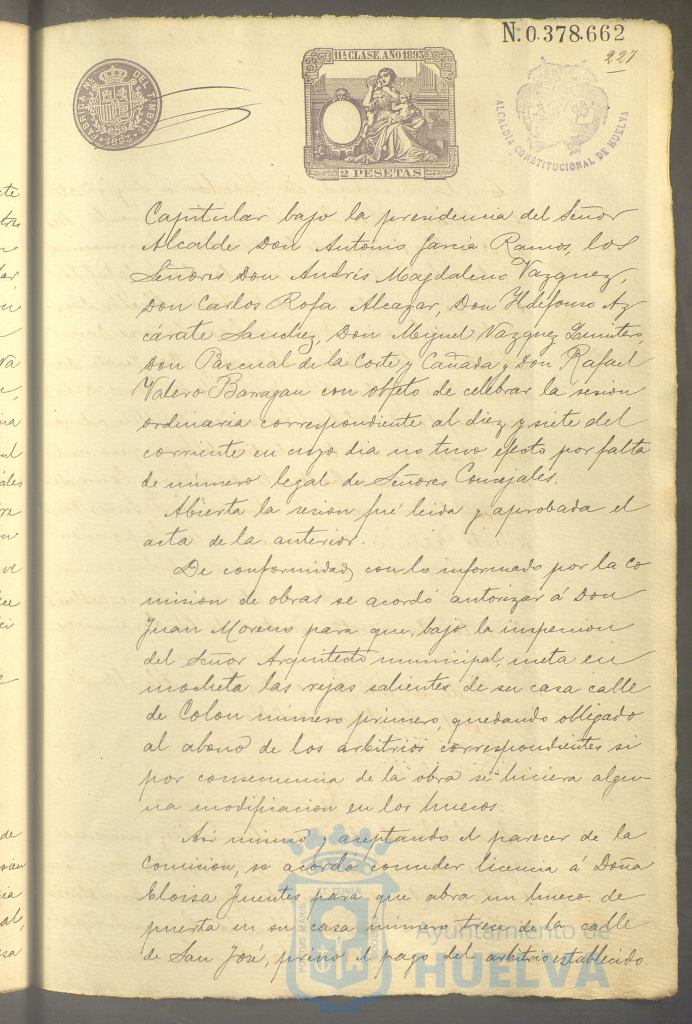 N. 0.378.662
227
FABRICA NL. DEL TIMBRE
1893
11ª CLASE. AÑO 1893
2 PESETAS
ALCALDIA CONSTITUCIONAL DE HUELVA
Capitular bajo la presidencia del Señor
Alcalde Don Antonio Garcia Ramos, los
Señores Don Andrés Magdaleno Vazquez,
Don Carlos Rofa Alcazar, Don Ildefonso Az
cárate Sanchez, Don Miguel Vazquez Quintero,
Don Pascual de la Corte y Cañada y Don Rafael
Valero Barragan con objeto de celebrar la sesion
ordinaria correspondiente al diez y siete del
corriente en cuyo dia no tuvo efecto por falta
de número legal de Señores Concejales.
Abierta la sesion fué leida y aprobada el
acta de la anterior.
De conformidad con lo informado por la co
mision de obras se acordó autorizar á Don
Juan Moreno para que, bajo la inspeccion
del Señor Arquitecto municipal, meta en
mocheta las rejas salientes de su casa calle
de Colon número primero, quedando obligado
al abono de los arbitrios correspondientes si
por consecuencia de la obra se hiciera algu-
na modificacion en los huecos.
Asi mismo y aceptando el parecer de la
Comision, se acordó conceder licencia á Doña
Eloisa Fuentes para que abra un hueco de
puerta en su casa número trece de la calle
de San José, prévio el pago del arbitrio establecido.
Ayuntamiento de
HUELVA
PORTUS MARIS
ET TERRE
CUSTODIA